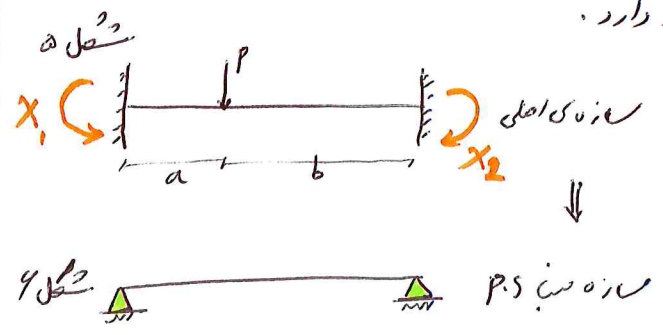 دارد.
شکل ۵
P
X₁
X₂
سازه‌ی اصلی
a b
⇓
شکل ۶
سازه مبنا P.S